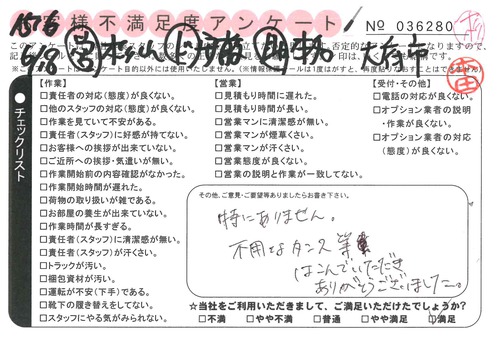 お客様不満足度アンケート
No 036280
●チェックリスト
【作業】
□責任者の対応(態度)が良くない。
□他のスタッフの対応(態度)が良くない。
□作業を見ていて不安がある。
□責任者(スタッフ)に好感が持てない。
□お客様への挨拶が出来ていない。
□ご近所への挨拶・気遣いが無い。
□作業開始前の内容確認がなかった。
□作業開始時間が遅れた。
□荷物の取り扱いが雑である。
□お部屋の養生が出来ていない。
□作業時間が長すぎる。
□責任者(スタッフ)に清潔感が無い。
□責任者(スタッフ)が汗くさい。
□トラックが汚い。
□梱包資材が汚い。
□運転が不安(下手)である。
□靴下の履き替えをしてない。
□スタッフにやる気がみられない。
【営業】
□見積もり時間に遅れた。
□見積もり時間が長い。
□営業マンに清潔感が無い。
□営業マンが煙草くさい。
□営業マンが汗くさい。
□営業態度が良くない。
□営業の説明と作業が一致してない。
【受付・その他】
□電話の対応が良くない。
□オプション業者の説明
・作業が良くない。
□オプション業者の対応
(態度)が良くない。
その他、ご意見・ご要望等ありましたらお書き下さい。
特にありません。
不用なタンス等
はこんでいただき
ありがとうございました。
☆当社をご利用いただきまして、ご満足いただけたでしょうか?
□不満 □やや不満 □普通 □やや満足 □満足